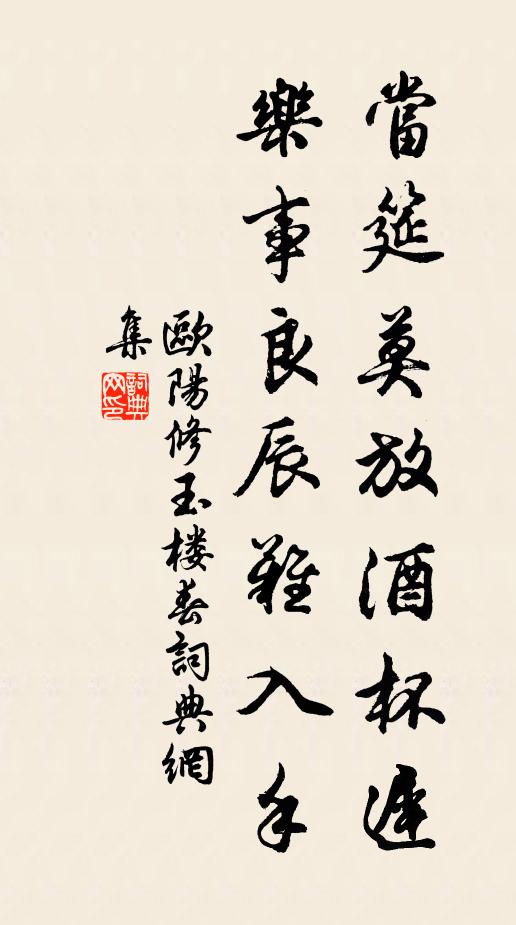 當筵莫放酒杯遲
樂事良辰難入手
歐陽修玉楼春詞典網
集
詞典
网印